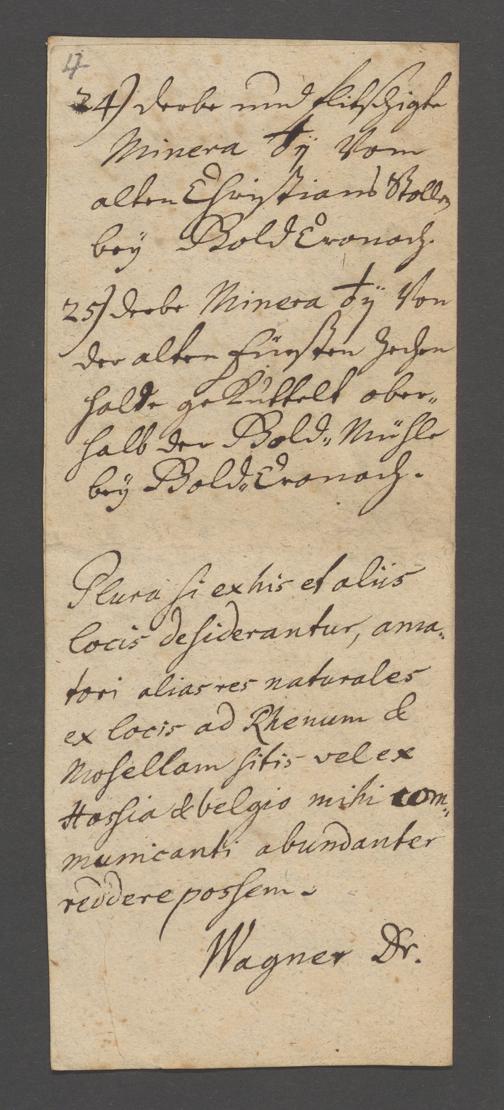 4
24) derbe und flitschigte
Minera ♁ij Vom
alten Christians Stollen
bey Bold Cronach.
25) derbe Minera ♁ij Von
der alten Fürsten Zechen
halde gekuttelt ober„
halb der Bold„ Mühle
bey Bold„Cronach.
Plura si ex his et aliis
locis desiderantur, ama„
tori alias res naturales
ex locis ad Rhenum &
Mosellam sitis vel ex
Hassia & belgio mihi com„
municanti abundanter
reddere possem.
Wagner Dr.